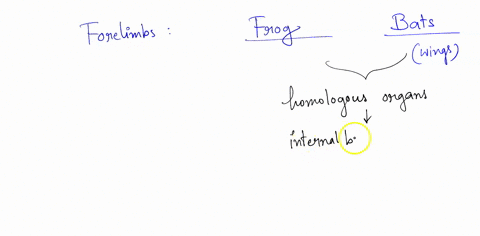 Forelimbs : Frog Bats
(wings)
homologous organs
internal b